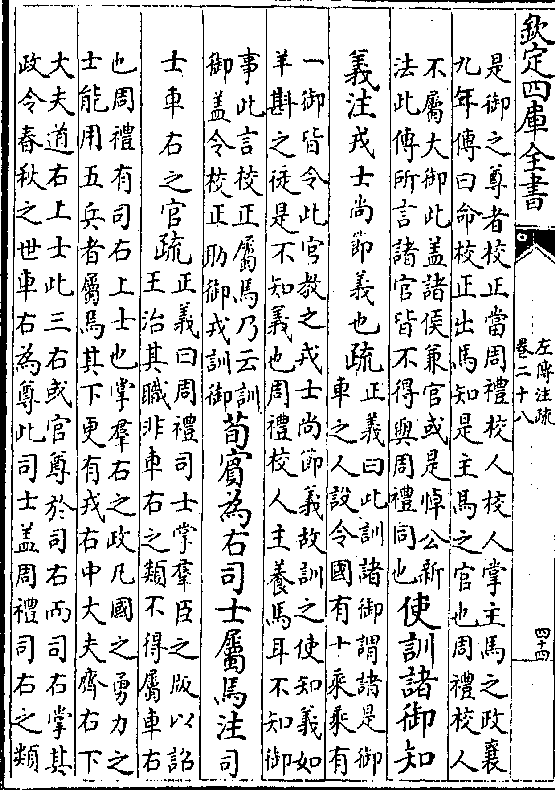 欽定四庫全書
左傳注疏
卷二十八
四十四
是御之尊者校正當周禮校人校人掌主馬之政襄
九年傳曰命校正出馬知是主馬之官也周禮校人
不屬大御此蓋諸侯兼官或是悼公新
法此傳所言諸官皆不得與周禮同也
使訓諸御知
義注戎士尚節義也疏
正義曰此訓諸御謂諸是御
車之人設令國有十乘乘有
一御皆令此官教之戎士尚節義故訓之使知義如
羊斟之徒是不知義也周禮校人主養馬耳不知御
事此言校正屬焉乃云訓
御蓋令校正助御戎訓御
荀賓為右司士屬焉注司
士車右之官疏
正義曰周禮司士掌羣臣之版以詔
王治其職非車右之類不得屬車右
也周禮有司右上士也掌羣右之政凡國之勇力之
士能用五兵者屬焉其下更有戎右中大夫齊右下
大夫道右上士此三右或官尊於司右而司右掌其
政令春秋之世車右為尊此司士蓋周禮司右之類